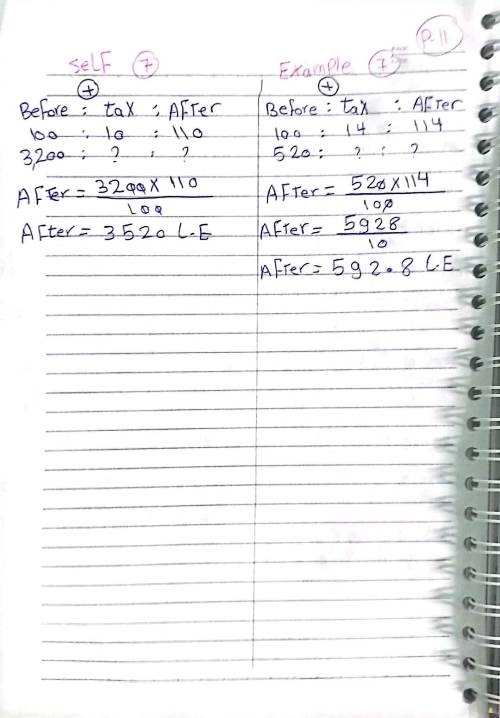 P. 11
SeLF 7
+
Before : tax : AFter
100 : 10 : 110
3,200 : ? : ?
AFter = 3200 x 110
100
AFter = 3520 L.E
Example 7
+
Before : tax : AFter
100 : 14 : 114
520 : ? : ?
AFter = 520 x 114
100
AFter = 5928
10
AFter = 592.8 L.E